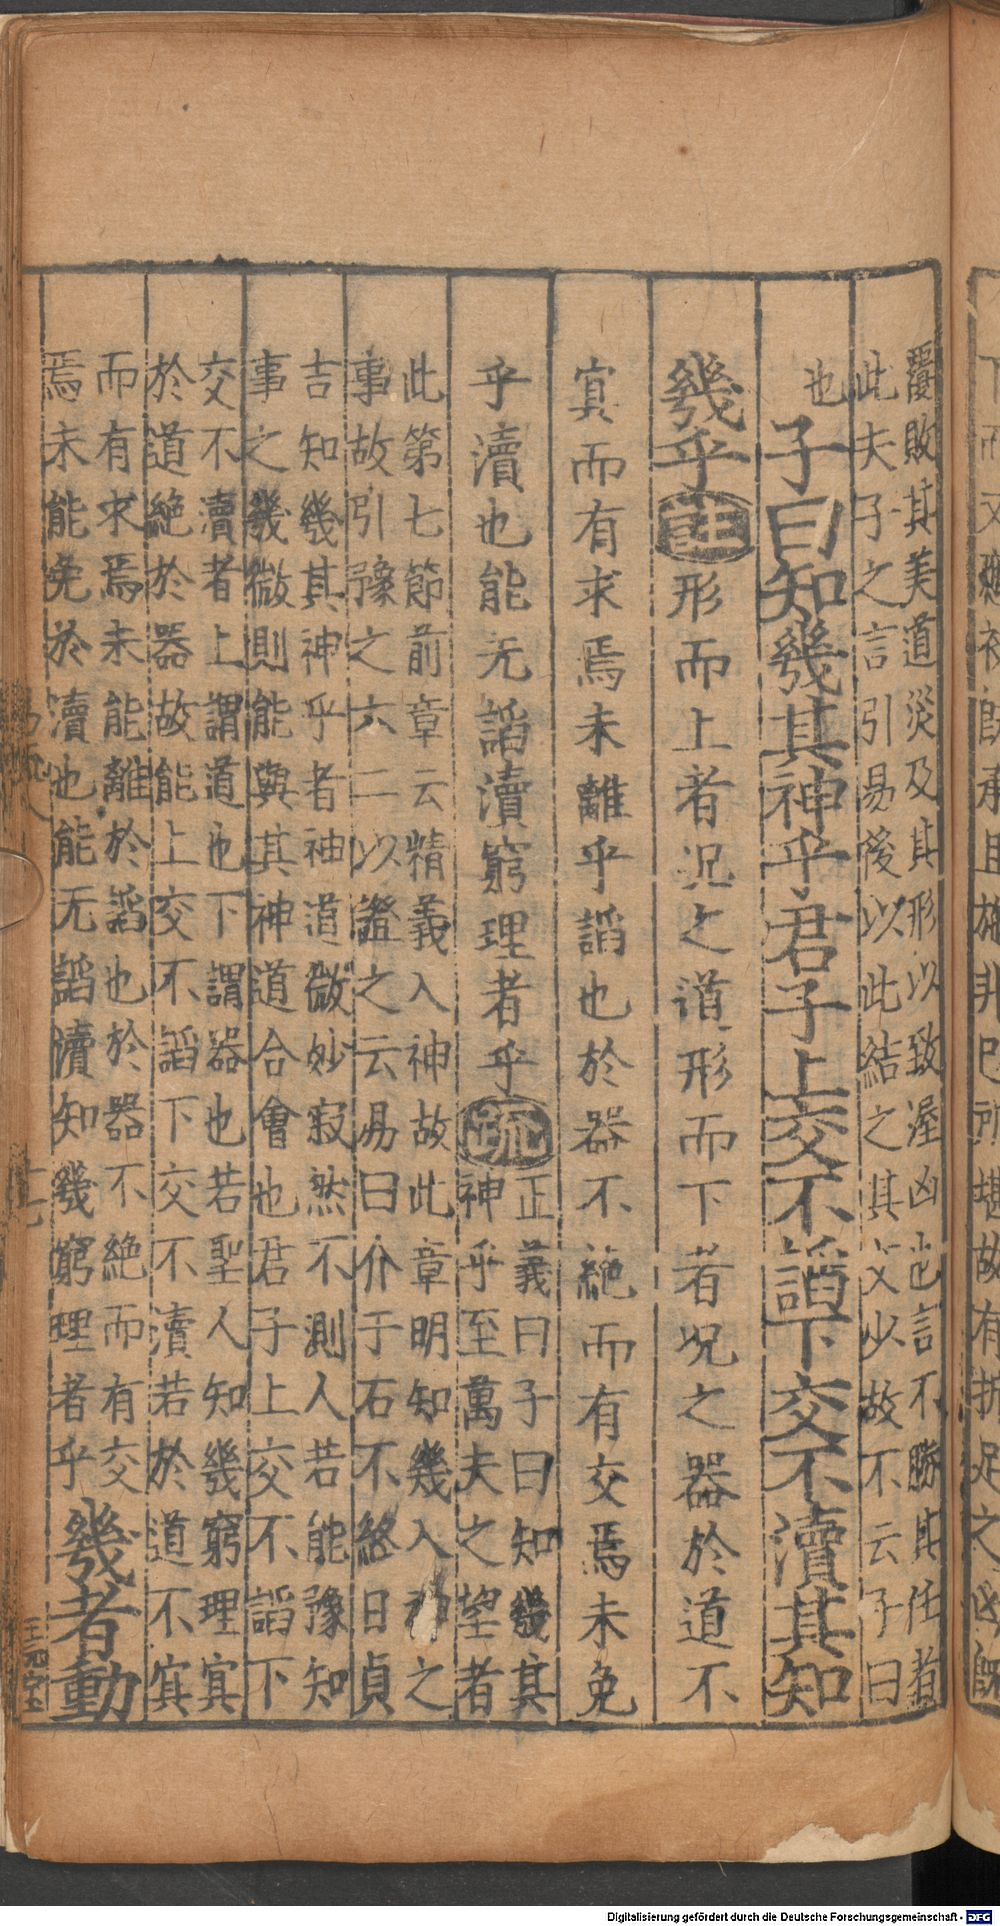 下而又應初既承且施非已所堪故有折足之凶既
覆敗其美道災及其形以致渥凶也言不勝其任者
此夫子之言引易後以此結之其文少故不云子曰
也子曰知幾其神乎君子上交不謟下交不瀆其知
幾乎註形而上者况之道形而下者况之器於道不
㝠而有求焉未離乎謟也於器不絶而有交焉未免
乎瀆也能无謟瀆窮理者乎疏正義曰子曰知幾其
神乎至萬夫之望者
此第七節前章云精義入神故此章明知幾入神之
事故引豫之六二以證之云易曰介于石不終日貞
吉知幾其神乎者神道微妙寂然不測人若能豫知
事之幾微則能與其神道合會也君子上交不謟下
交不瀆者上謂道也下謂器也若聖人知幾窮理㝠
於道絶於器故能上交不謟下交不瀆若於道不㝠
而有求焉未能離於謟也於器不絶而有交
焉未能免於瀆也能无謟瀆知幾窮理者乎幾者動
十七
王元宝
Digitalisierung gefördert durch die Deutsche Forschungsgemeinschaft - DFG